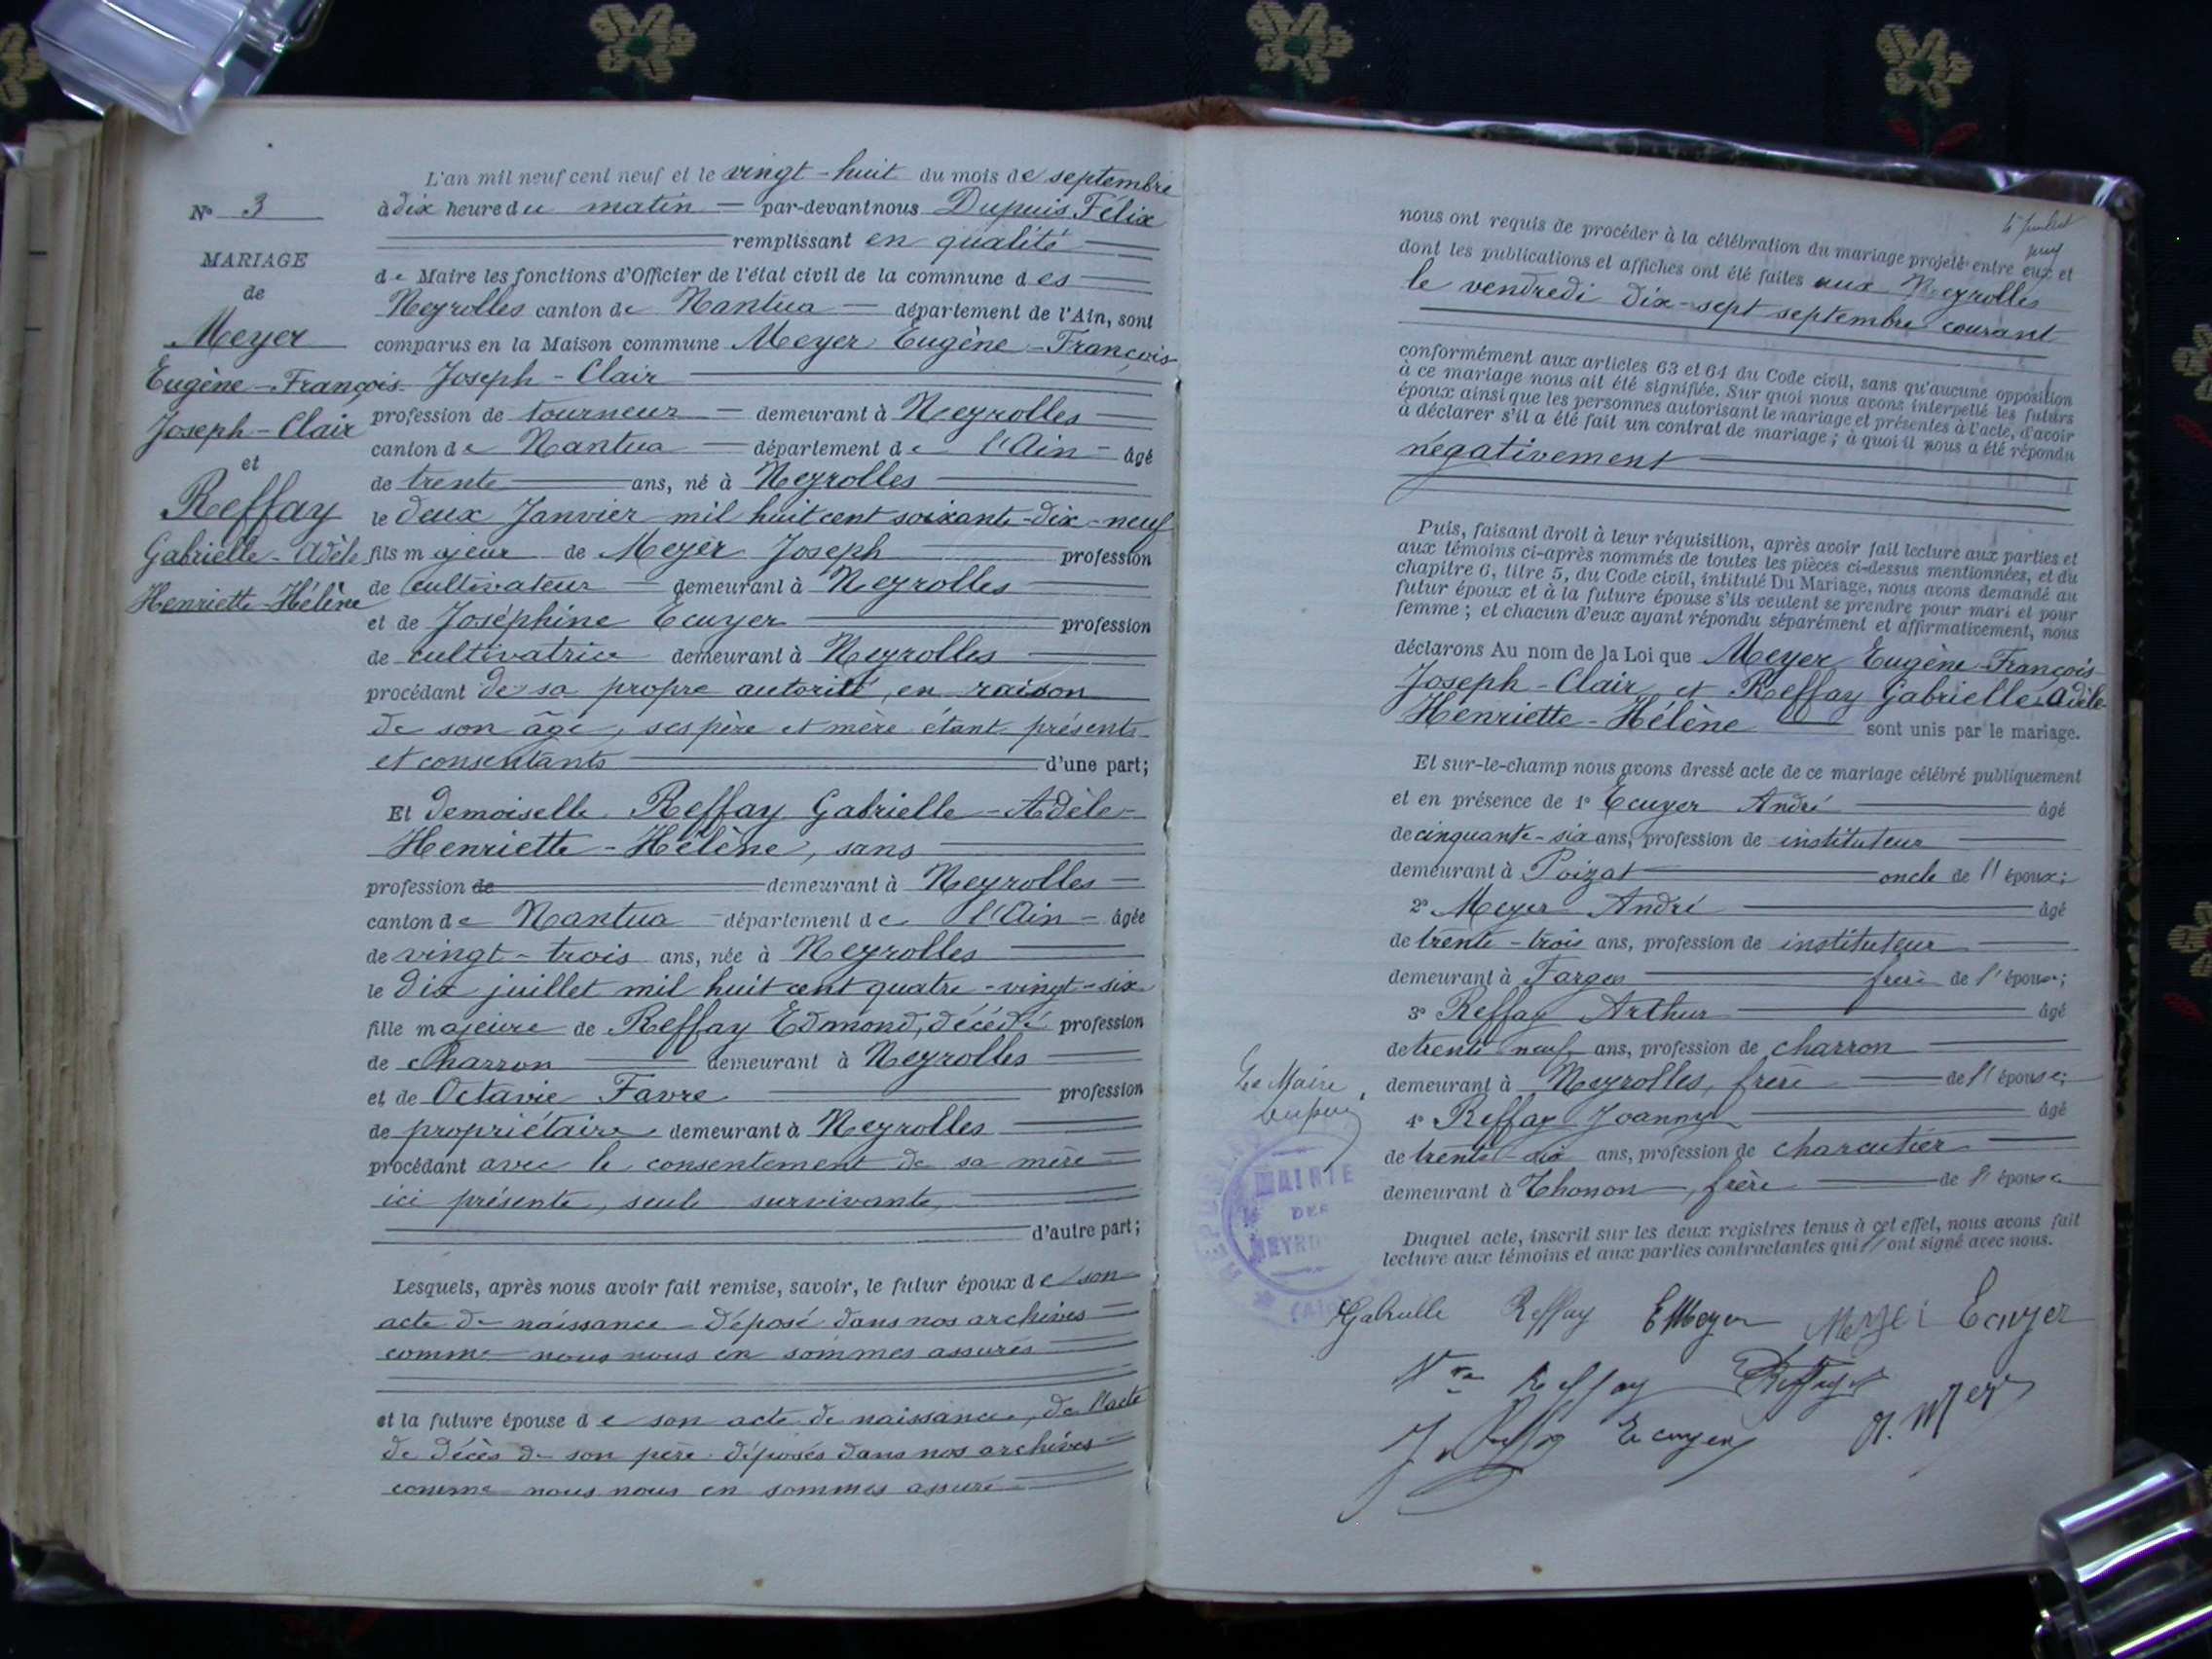 L'an mil neuf cent neuf et le vingt-huit du mois de septembre
à dix heure du matin — par-devant nous Dupuis Félix
remplissant en qualité
de Maire les fonctions d'Officier de l'état civil de la commune des
Neyrolles canton de Nantua — département de l'Ain, sont
comparus en la Maison commune Meyer Eugène-François
Joseph-Clair
profession de tourneur — demeurant à Neyrolles
canton de Nantua — département de l'Ain - âgé
de trente ans, né à Neyrolles
le deux Janvier mil huit cent soixante-dix-neuf
fils majeur de Meyer Joseph profession
de cultivateur — demeurant à Neyrolles
et de Joséphine Ecuyer profession
de cultivatrice demeurant à Neyrolles
procédant de sa propre autorité, en raison
de son âge, ses père et mère étant présents
et consentants d'une part;
Et demoiselle Reffay Gabrielle-Adèle-
Henriette-Hélène, sans
profession de demeurant à Neyrolles
canton de Nantua - département de l'Ain - âgée
de vingt-trois ans, née à Neyrolles
le dix juillet mil huit cent quatre-vingt-six
fille majeure de Reffay Edmond, décédé profession
de charron demeurant à Neyrolles
et de Octavie Favre profession
de propriétaire demeurant à Neyrolles
procédant avec le consentement de sa mère
ici présente, seule survivante,
d'autre part;
Lesquels, après nous avoir fait remise, savoir, le futur époux de son
acte de naissance déposé dans nos archives
comme nous nous en sommes assurés
et la future épouse de son acte de naissance, de l'acte
de décès de son père déposés dans nos archives
comme nous nous en sommes assuré
N° 3
MARIAGE
de
Meyer
Eugène-François
Joseph-Clair
et
Reffay
Gabrielle-Adèle
Henriette-Hélène
nous ont requis de procéder à la célébration du mariage projeté entre eux et
dont les publications et affiches ont été faites aux Neyrolles
le vendredi dix-sept septembre courant
conformément aux articles 63 et 64 du Code civil, sans qu'aucune opposition
à ce mariage nous ait été signifiée. Sur quoi nous avons interpellé les futurs
époux ainsi que les personnes autorisant le mariage et présentes à l'acte, d'avoir
à déclarer s'il a été fait un contrat de mariage; à quoi il nous a été répondu
négativement
Puis, faisant droit à leur réquisition, après avoir fait lecture aux parties et
aux témoins ci-après nommés de toutes les pièces ci-dessus mentionnées, et du
chapitre 6, titre 5, du Code civil, intitulé Du Mariage, nous avons demandé au
futur époux et à la future épouse s'ils veulent se prendre pour mari et pour
femme; et chacun d'eux ayant répondu séparément et affirmativement, nous
déclarons Au nom de la Loi que Meyer Eugène-François
Joseph-Clair et Reffay Gabrielle-Adèle
Henriette-Hélène sont unis par le mariage.
Et sur-le-champ nous avons dressé acte de ce mariage célébré publiquement
et en présence de 1° Ecuyer André âgé
de cinquante-six ans, profession de instituteur
demeurant à Poizat oncle de l'époux;
2° Meyer André âgé
de trente-trois ans, profession de instituteur
demeurant à Farges frère de l'époux;
3° Reffay Arthur âgé
de trente neuf ans, profession de charron
demeurant à Neyrolles, frère de l'épouse;
4° Reffay Joanny âgé
de trente-six ans, profession de charcutier
demeurant à Thonon, frère de l'épouse
Duquel acte, inscrit sur les deux registres tenus à cet effet, nous avons fait
lecture aux témoins et aux parties contractantes qui ont signé avec nous.
Le Maire,
Dupuis
MAIRIE
DES
NEYRO
(Ain)
Gabrielle Reffay E Meyer Meyer Ecuyer
Vve Reffay
Ecuyer A. Meyer